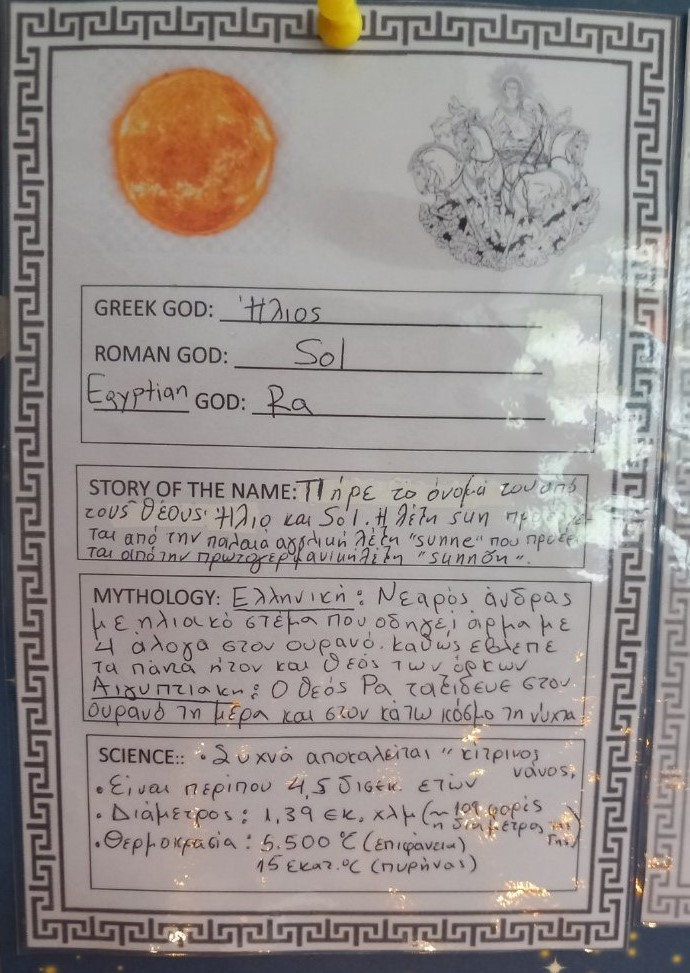 GREEK GOD: Ήλιος
ROMAN GOD: Sol
Egyptian GOD: Ra
STORY OF THE NAME: Πήρε το όνομά του από
τους θεους Ήλιο και Sol. Η λέξη sun
ται από την παλαιά αγγλική λέξη "sunne" που προέρχε
ται από την πρωτογερμανική λέξη "sunnōn".
MYTHOLOGY: Ελληνική: Νεαρός άνδρας
με ηλιακό στέμα που οδηγεί άρμα με
4 άλογα στον ουρανό. καθώς έβλεπε
τα πάντα ήτον και θεός των όρκων
Αιγυπτιακη: Ο θεός Ρα ταξίδευε στον
ουρανό τη μέρα και στον κάτω κόσμο τη νύχτα
SCIENCE:: • Συχνά αποκαλείται "κίτρινος
νάνος,
• Είναι περίπου 4,5 δισεκ. ετών
• Διάμετρος: 1,39 εκ. χλμ (~109 φορές
η διάμετρος της
Γης)
• Θερμοκρασία: 5.500 °C (επιφάνεια)
15 εκατ. °C (πυρήνας)